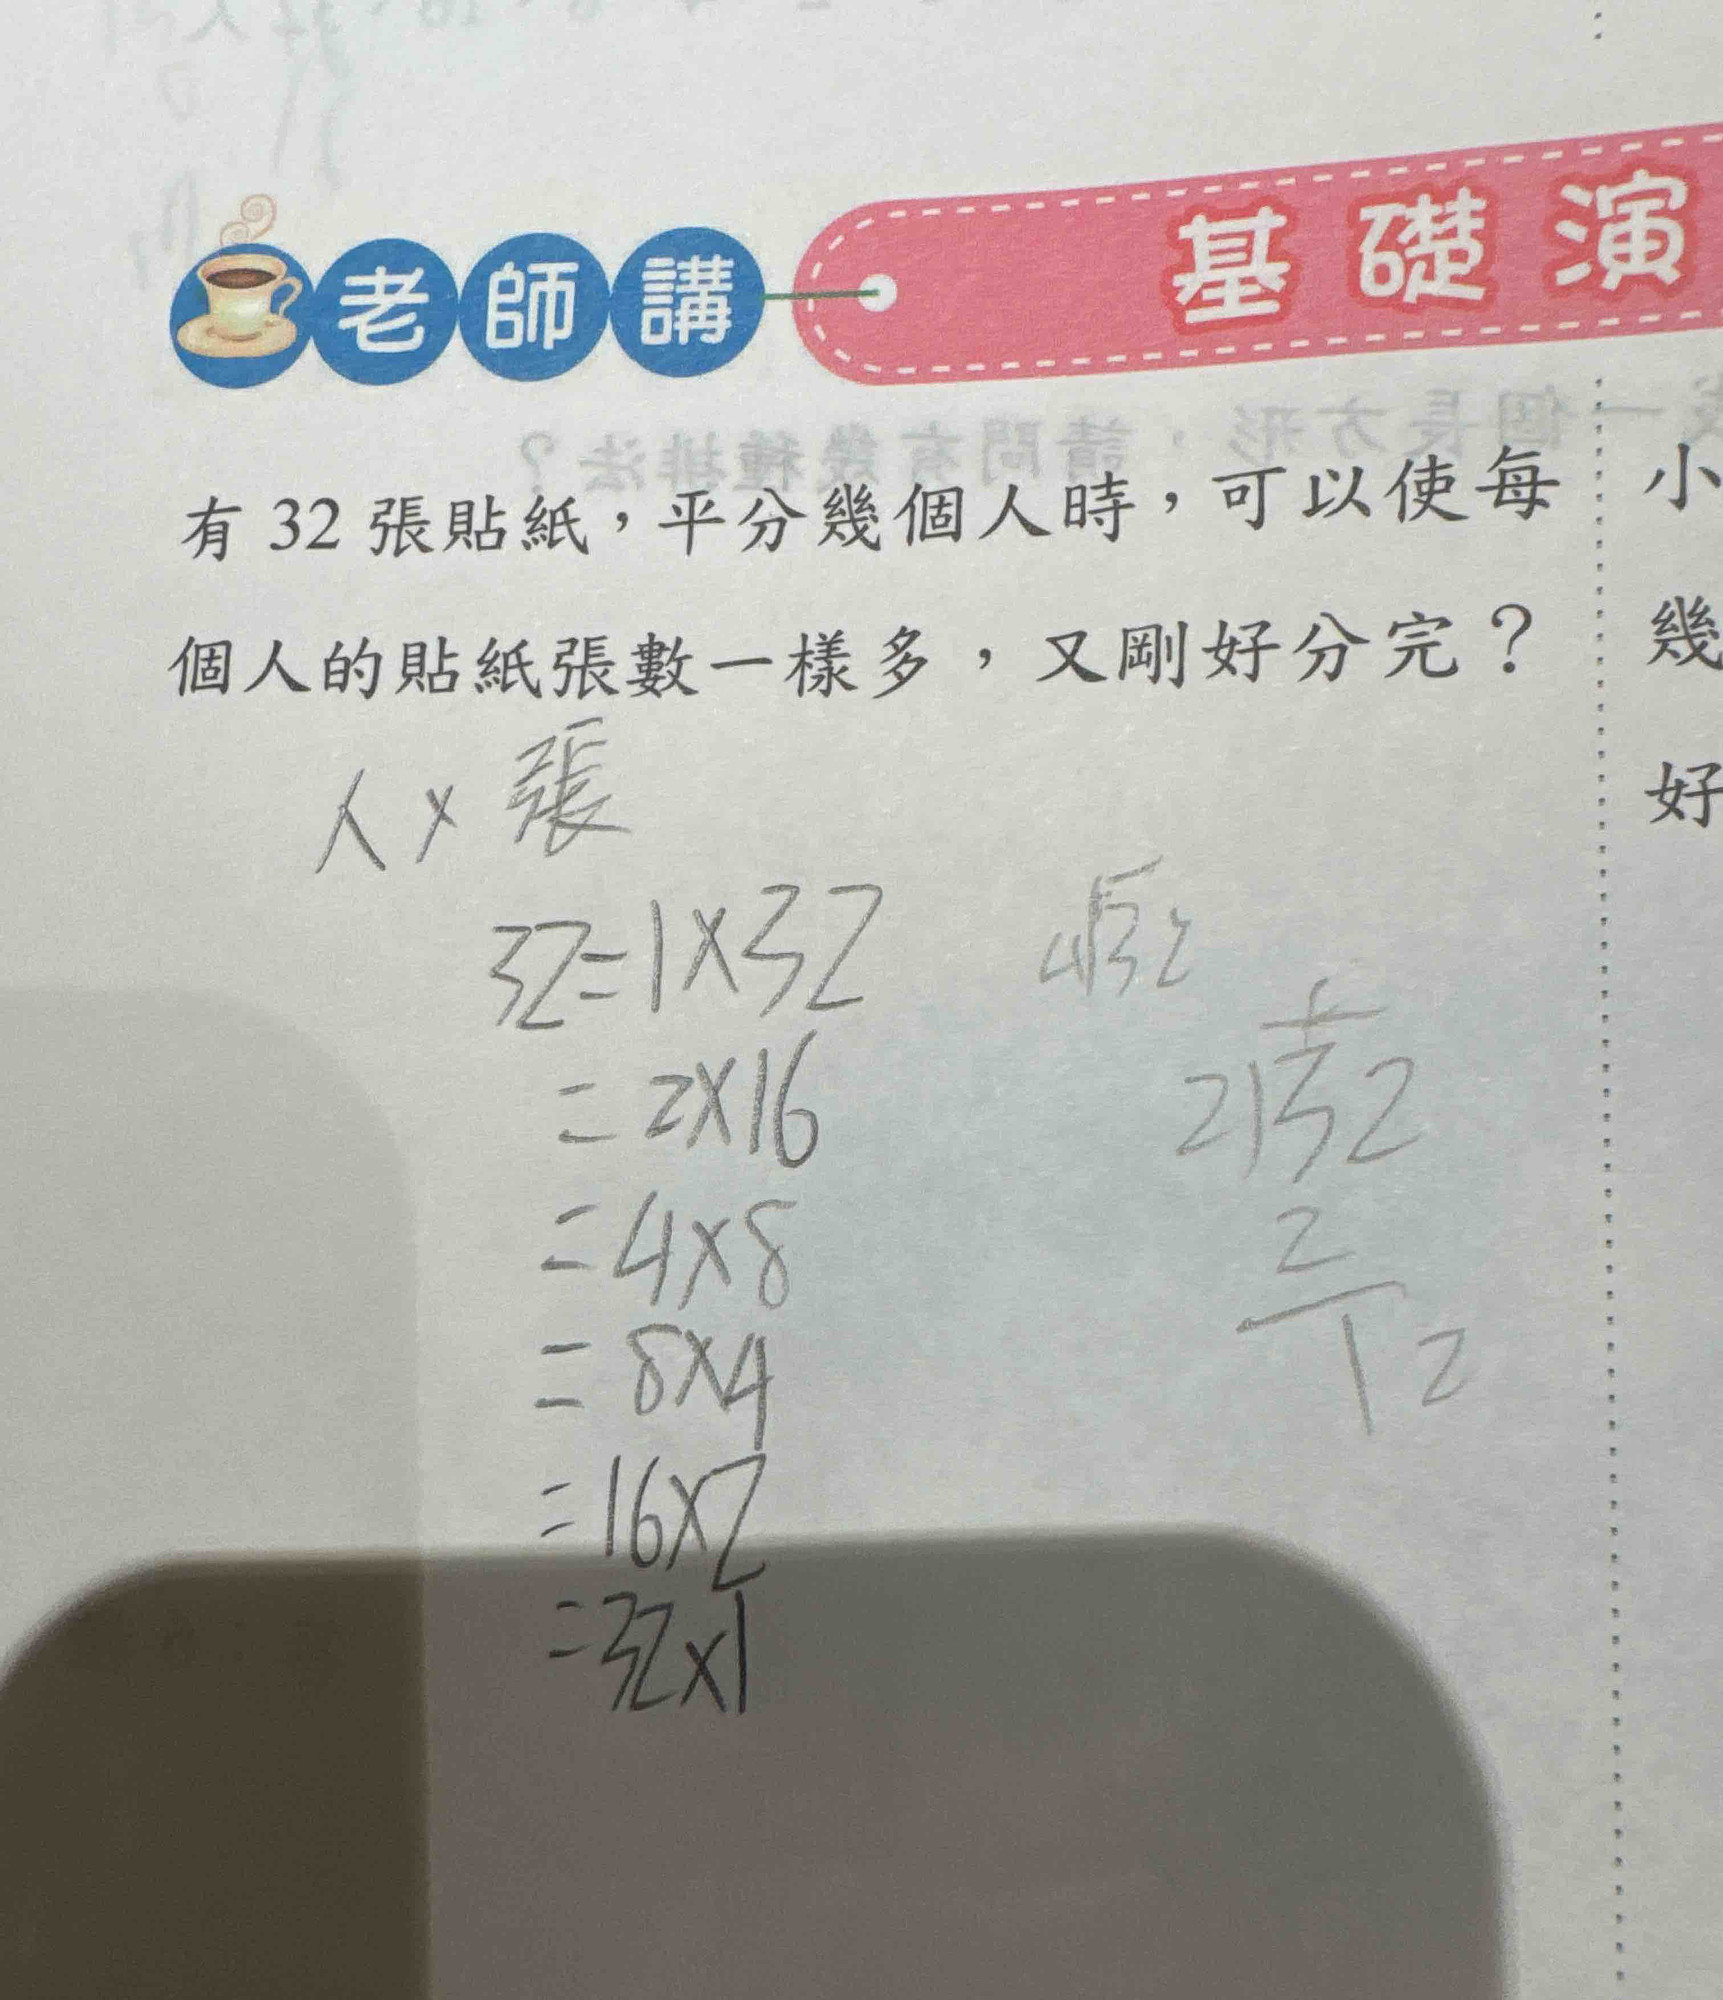 老師講
基礎演
有 32 張貼紙，平分幾個人時，可以使每
個人的貼紙張數一樣多，又剛好分完？
小
幾
好
人 × 張
32=1×32
=2×16
=4×8
=8×4
=16×2
=32×1
4 32
2 32
2
12